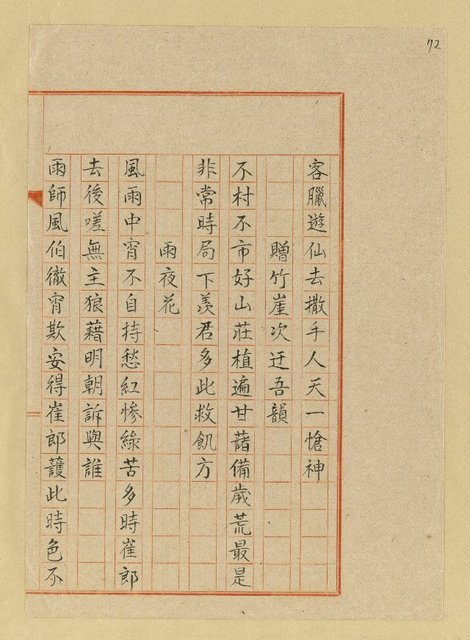 72
客臘遊仙去撒手人天一愴神
贈竹崖次迂吾韻
不村不市好山莊植遍甘藷備歲荒最是
非常時局下羨君多此救飢方
雨夜花
風雨中宵不自持愁紅慘綠苦多時崔郎
去後嗟無主狼藉明朝訴與誰
雨師風伯徹宵欺安得崔郎護此時色不